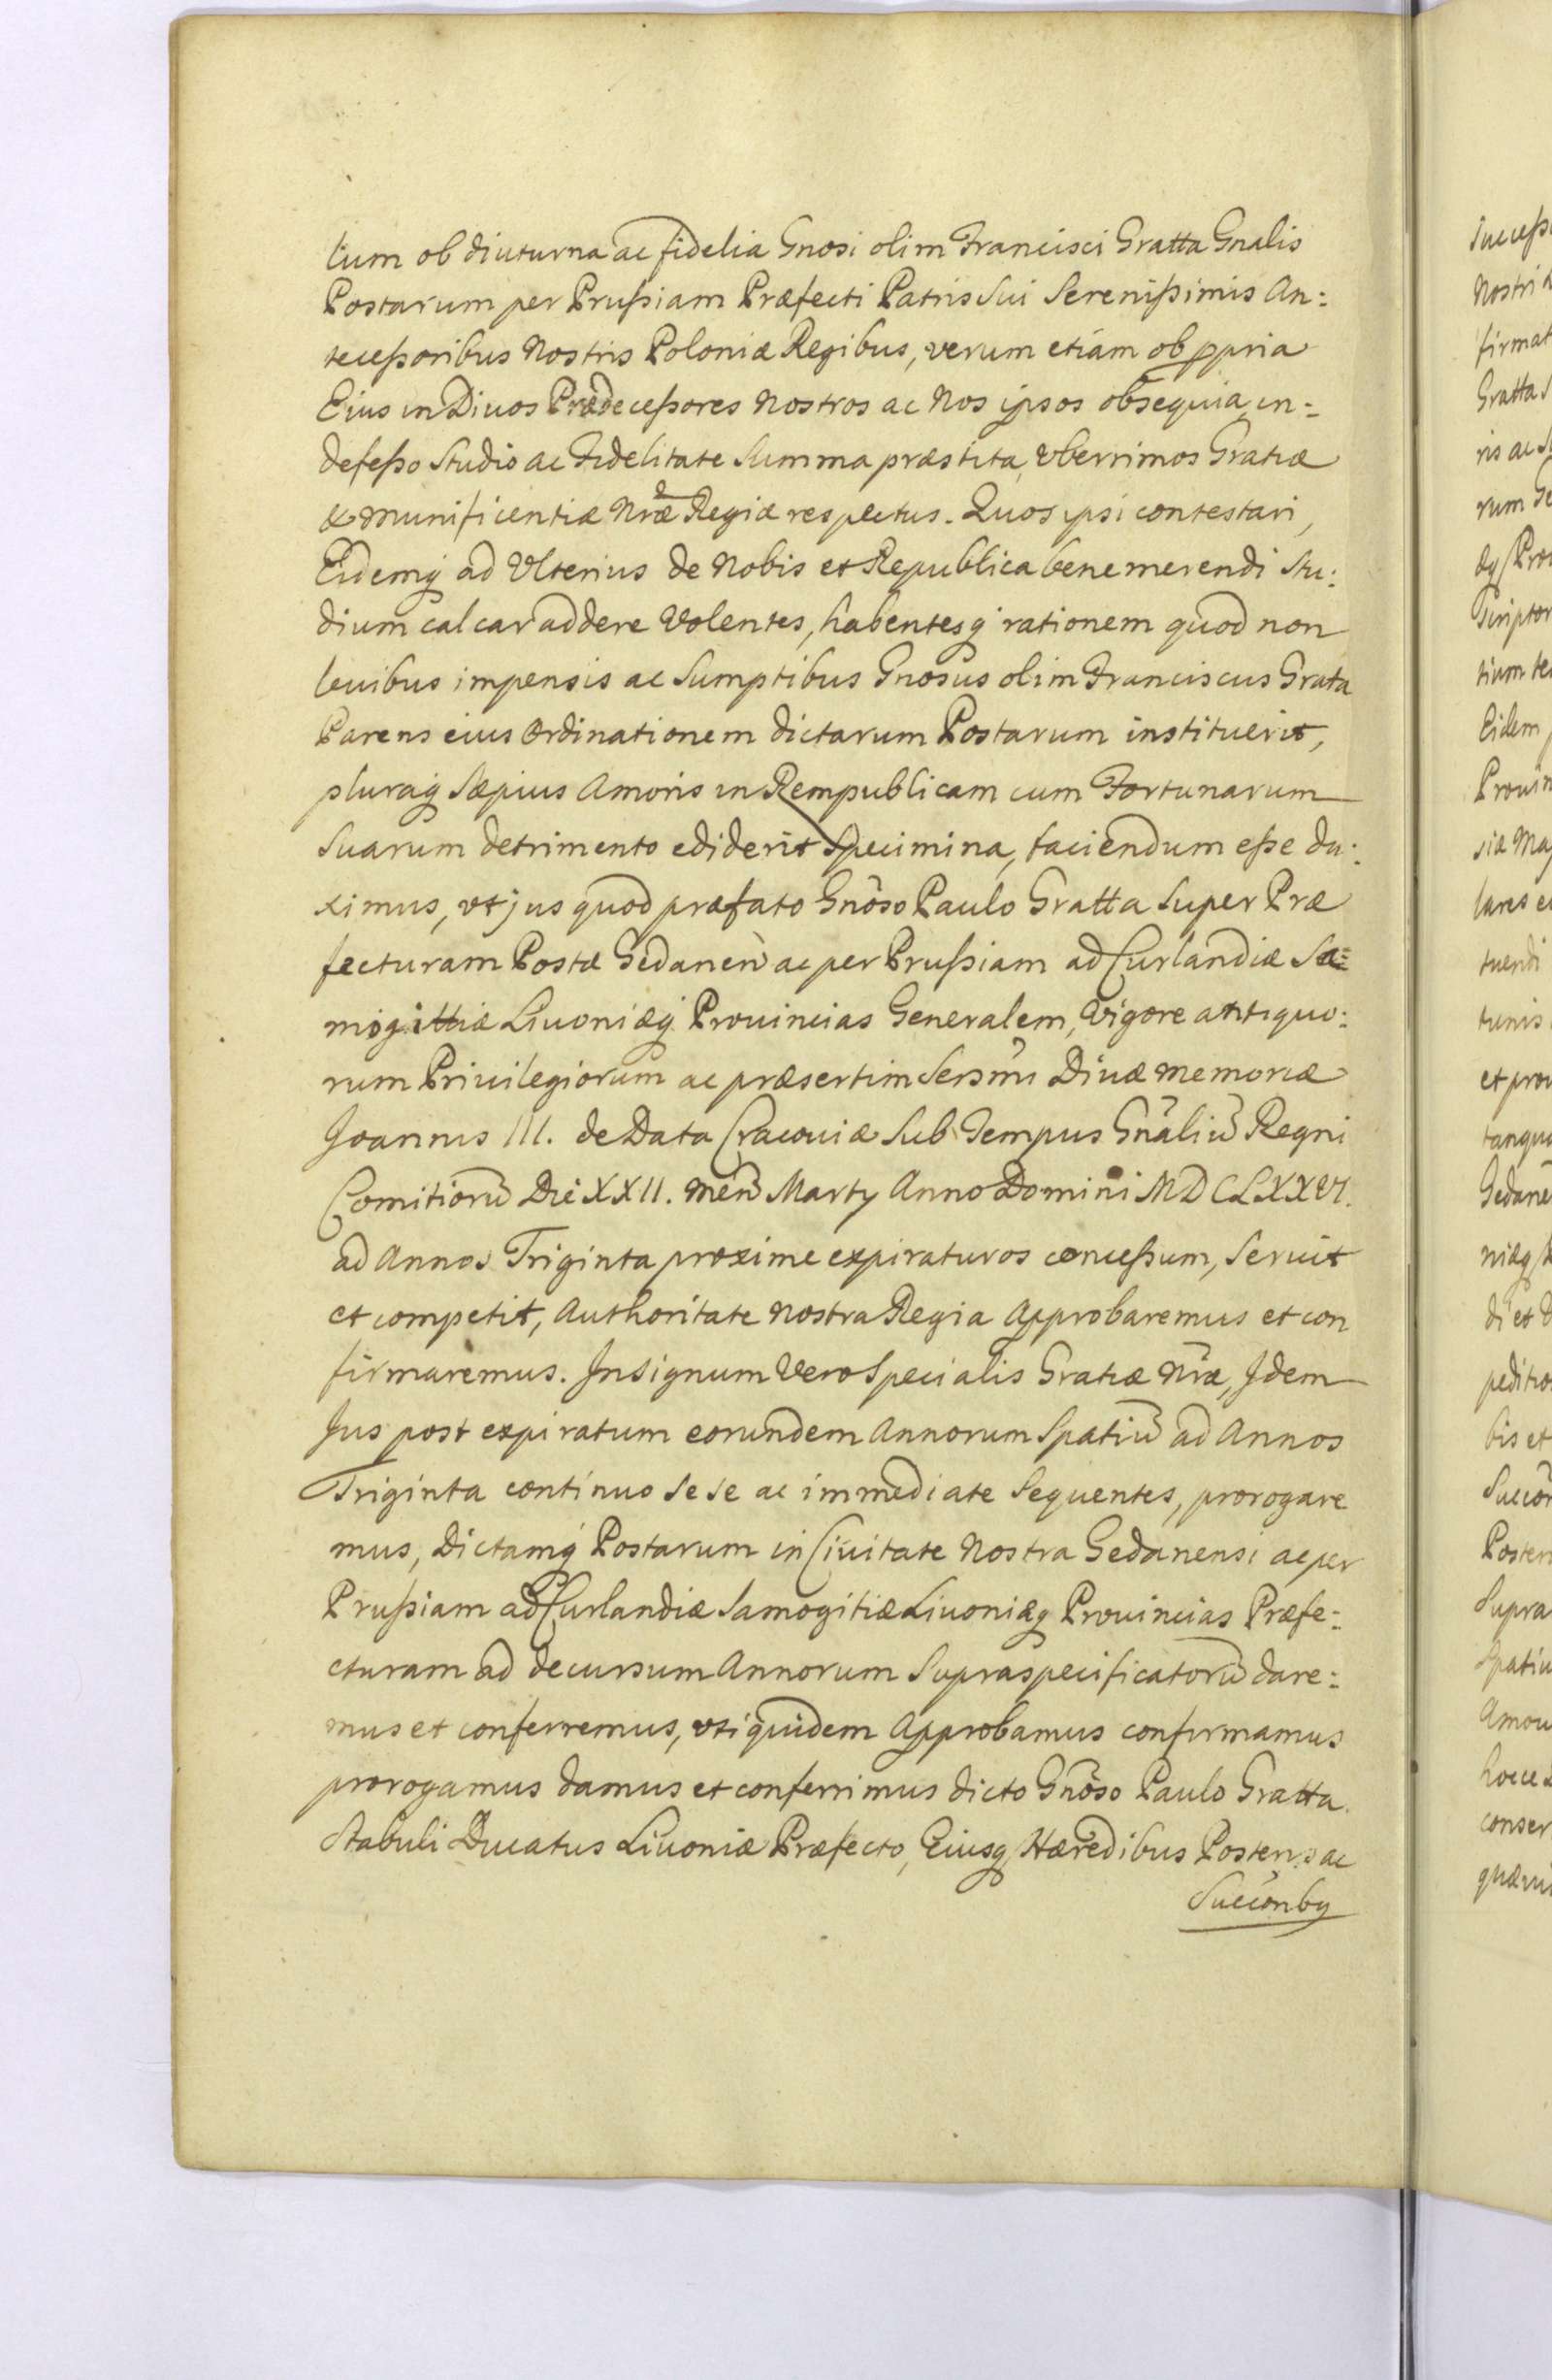 lium ob diuturna ac fidelia Gnosi olim Francisci Gratta Gnalis
Postarum per Prußiam Præfecti Patris Sui Serenißimis An=
teceßoribus Nostris Poloniæ Regibus, verum etiam ob ppria
Eius in Diuos Prædeceßores Nostros ac Nos ipsos obsequia, in=
defeßo Studio ac Fidelitate Summa præstita, Vberrimos Gratiæ
& Munificentiæ Nræ Regiæ respectus. Quos ipsi contestari,
Eidemq ad Vlterius de Nobis et Republica bene merendi Stu:
dium calcar addere Volentes, habentesq rationem quod non
leuibus impensis ac Sumptibus Gnosus olim Franciscus Grata
Parens eius Ordinationem dictarum Postarum instituerit,
pluraq Sæpius Amoris in Rempublicam cum Fortunarum
Suarum detrimento ediderit Specimina, faciendum eße du:
ximus, vt jus quod præfato Gnõso Paulo Gratta Super Præ
fecturam Postæ Gedanen ac per Prußiam ad Curlandiæ Sa=
mogittiæ Liuoniæq Prouincias Generalem, Vigore antiquo:
rum Priuilegiorum ac præsertim Sersmi Diuæ memoriæ
Joannis III. de Data Cracouiæ Sub Tempus Gnãliũ Regni
Comitiorũ Die XXII. Men Martÿ Anno Domini MDCLXXVI.
ad Annos Triginta proxime expiraturos conceßum, Seruit
et competit, Authoritate Nostra Regia Approbaremus et con
firmaremus. In Signum Vero Specialis Gratiæ Nræ, Idem
Jus post expiratum eorundem Annorum Spatiũ ad Annos
Triginta continuo Se Se ac immediate Sequentes, prorogare
mus, Dictamq Postarum in Ciuitate Nostra Gedanensi ac per
Prußiam ad Curlandiæ Samogitiæ Liuoniæq Prouincias Præfe=
cturam ad decursum Annorum Supraspecificatorũ dare=
mus et conferremus, vti quidem Approbamus confirmamus
prorogamus damus et conferrimus dicto Gnõso Paulo Gratta
Stabuli Ducatus Liuoniæ Præfecto, Eiusq Hæredibus Posteris ac
Succonbq